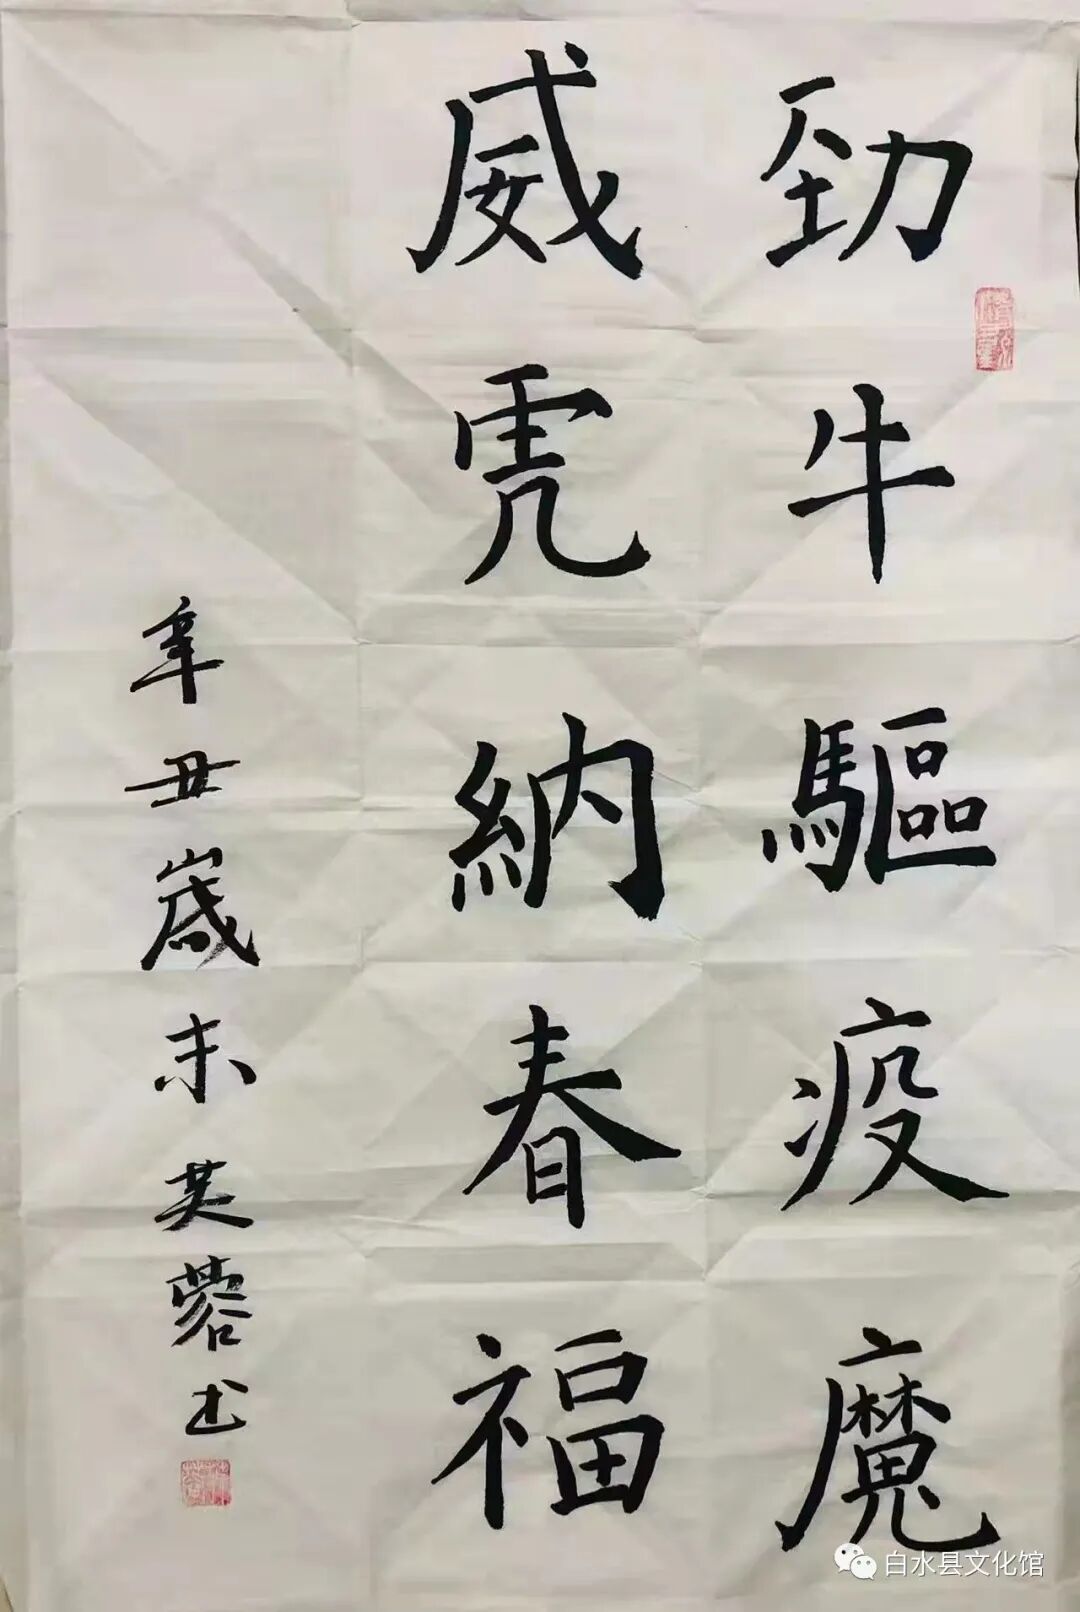 劲牛驅疫魔
威虎納春福
辛丑歲末英蓉书
白水县文化馆